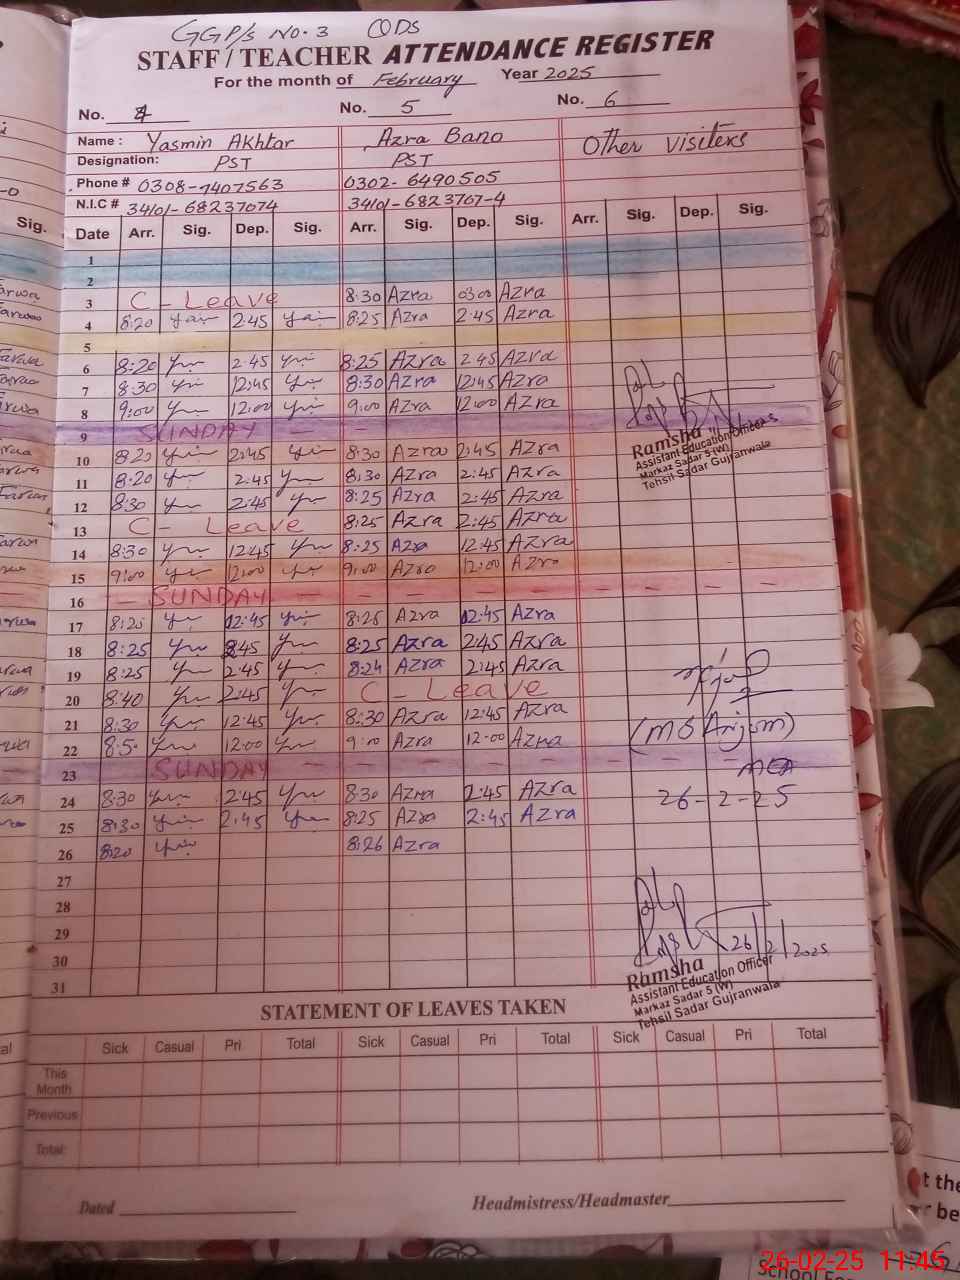 GGP/s No. 3 QDS
STAFF / TEACHER ATTENDANCE REGISTER
For the month of February Year 2025
No. 4 No. 5 No. 6
Name : Yasmin Akhtar Azra Bano Other Visiters
Designation: PST PST
Phone # 0308-7407563 0302-6490505
N.I.C # 34101-68237074 34101-6823707-4
Date Arr. Sig. Dep. Sig. Arr. Sig. Dep. Sig. Arr. Sig. Dep. Sig.
1
2
3 C - Leave 8:30 Azra 03:00 Azra
4 8:20 2:45 8:25 Azra 2:45 Azra
5
6 8:20 2:45 8:25 Azra 2:45 Azra
7 8:30 12:45 8:30 Azra 12:45 Azra
8 9:00 12:00 9:00 Azra 12:00 Azra
9 SUNDAY - -
Ramsha
Assistant Education Officer
Markaz Sadar 5 (W)
Tehsil Sadar Gujranwala
10 8:20 2:45 8:30 Azra 2:45 Azra
11 8:20 2:45 8:30 Azra 2:45 Azra
12 8:30 2:45 8:25 Azra 2:45 Azra
13 C - Leave 8:25 Azra 2:45 Azra
14 8:30 12:45 8:25 Azra 12:45 Azra
15 9:00 12:00 9:00 Azra 12:00 Azra
16 - SUNDAY - - - - - - - -
17 8:25 12:45 8:25 Azra 12:45 Azra
18 8:25 2:45 8:25 Azra 2:45 Azra
19 8:25 2:45 8:24 Azra 2:45 Azra
20 8:40 2:45 C - Leave
21 8:30 12:45 8:30 Azra 12:45 Azra
(MS Anjum)
22 8:50 12:00 9:00 Azra 12:00 Azra
23 SUNDAY - - - - - - - - -
MEA
24 8:30 2:45 8:30 Azra 2:45 Azra
26-2-25
25 8:30 2:45 8:25 Azra 2:45 Azra
26 8:20 8:26 Azra
27
28
29
26/2/2025
30
31
Ramsha
Assistant Education Officer
Markaz Sadar 5 (W)
Tehsil Sadar Gujranwala
STATEMENT OF LEAVES TAKEN
Sick Casual Pri Total Sick Casual Pri Total Sick Casual Pri Total
This Month
Previous
Total:
Dated Headmistress/Headmaster
26-02-25 11:45